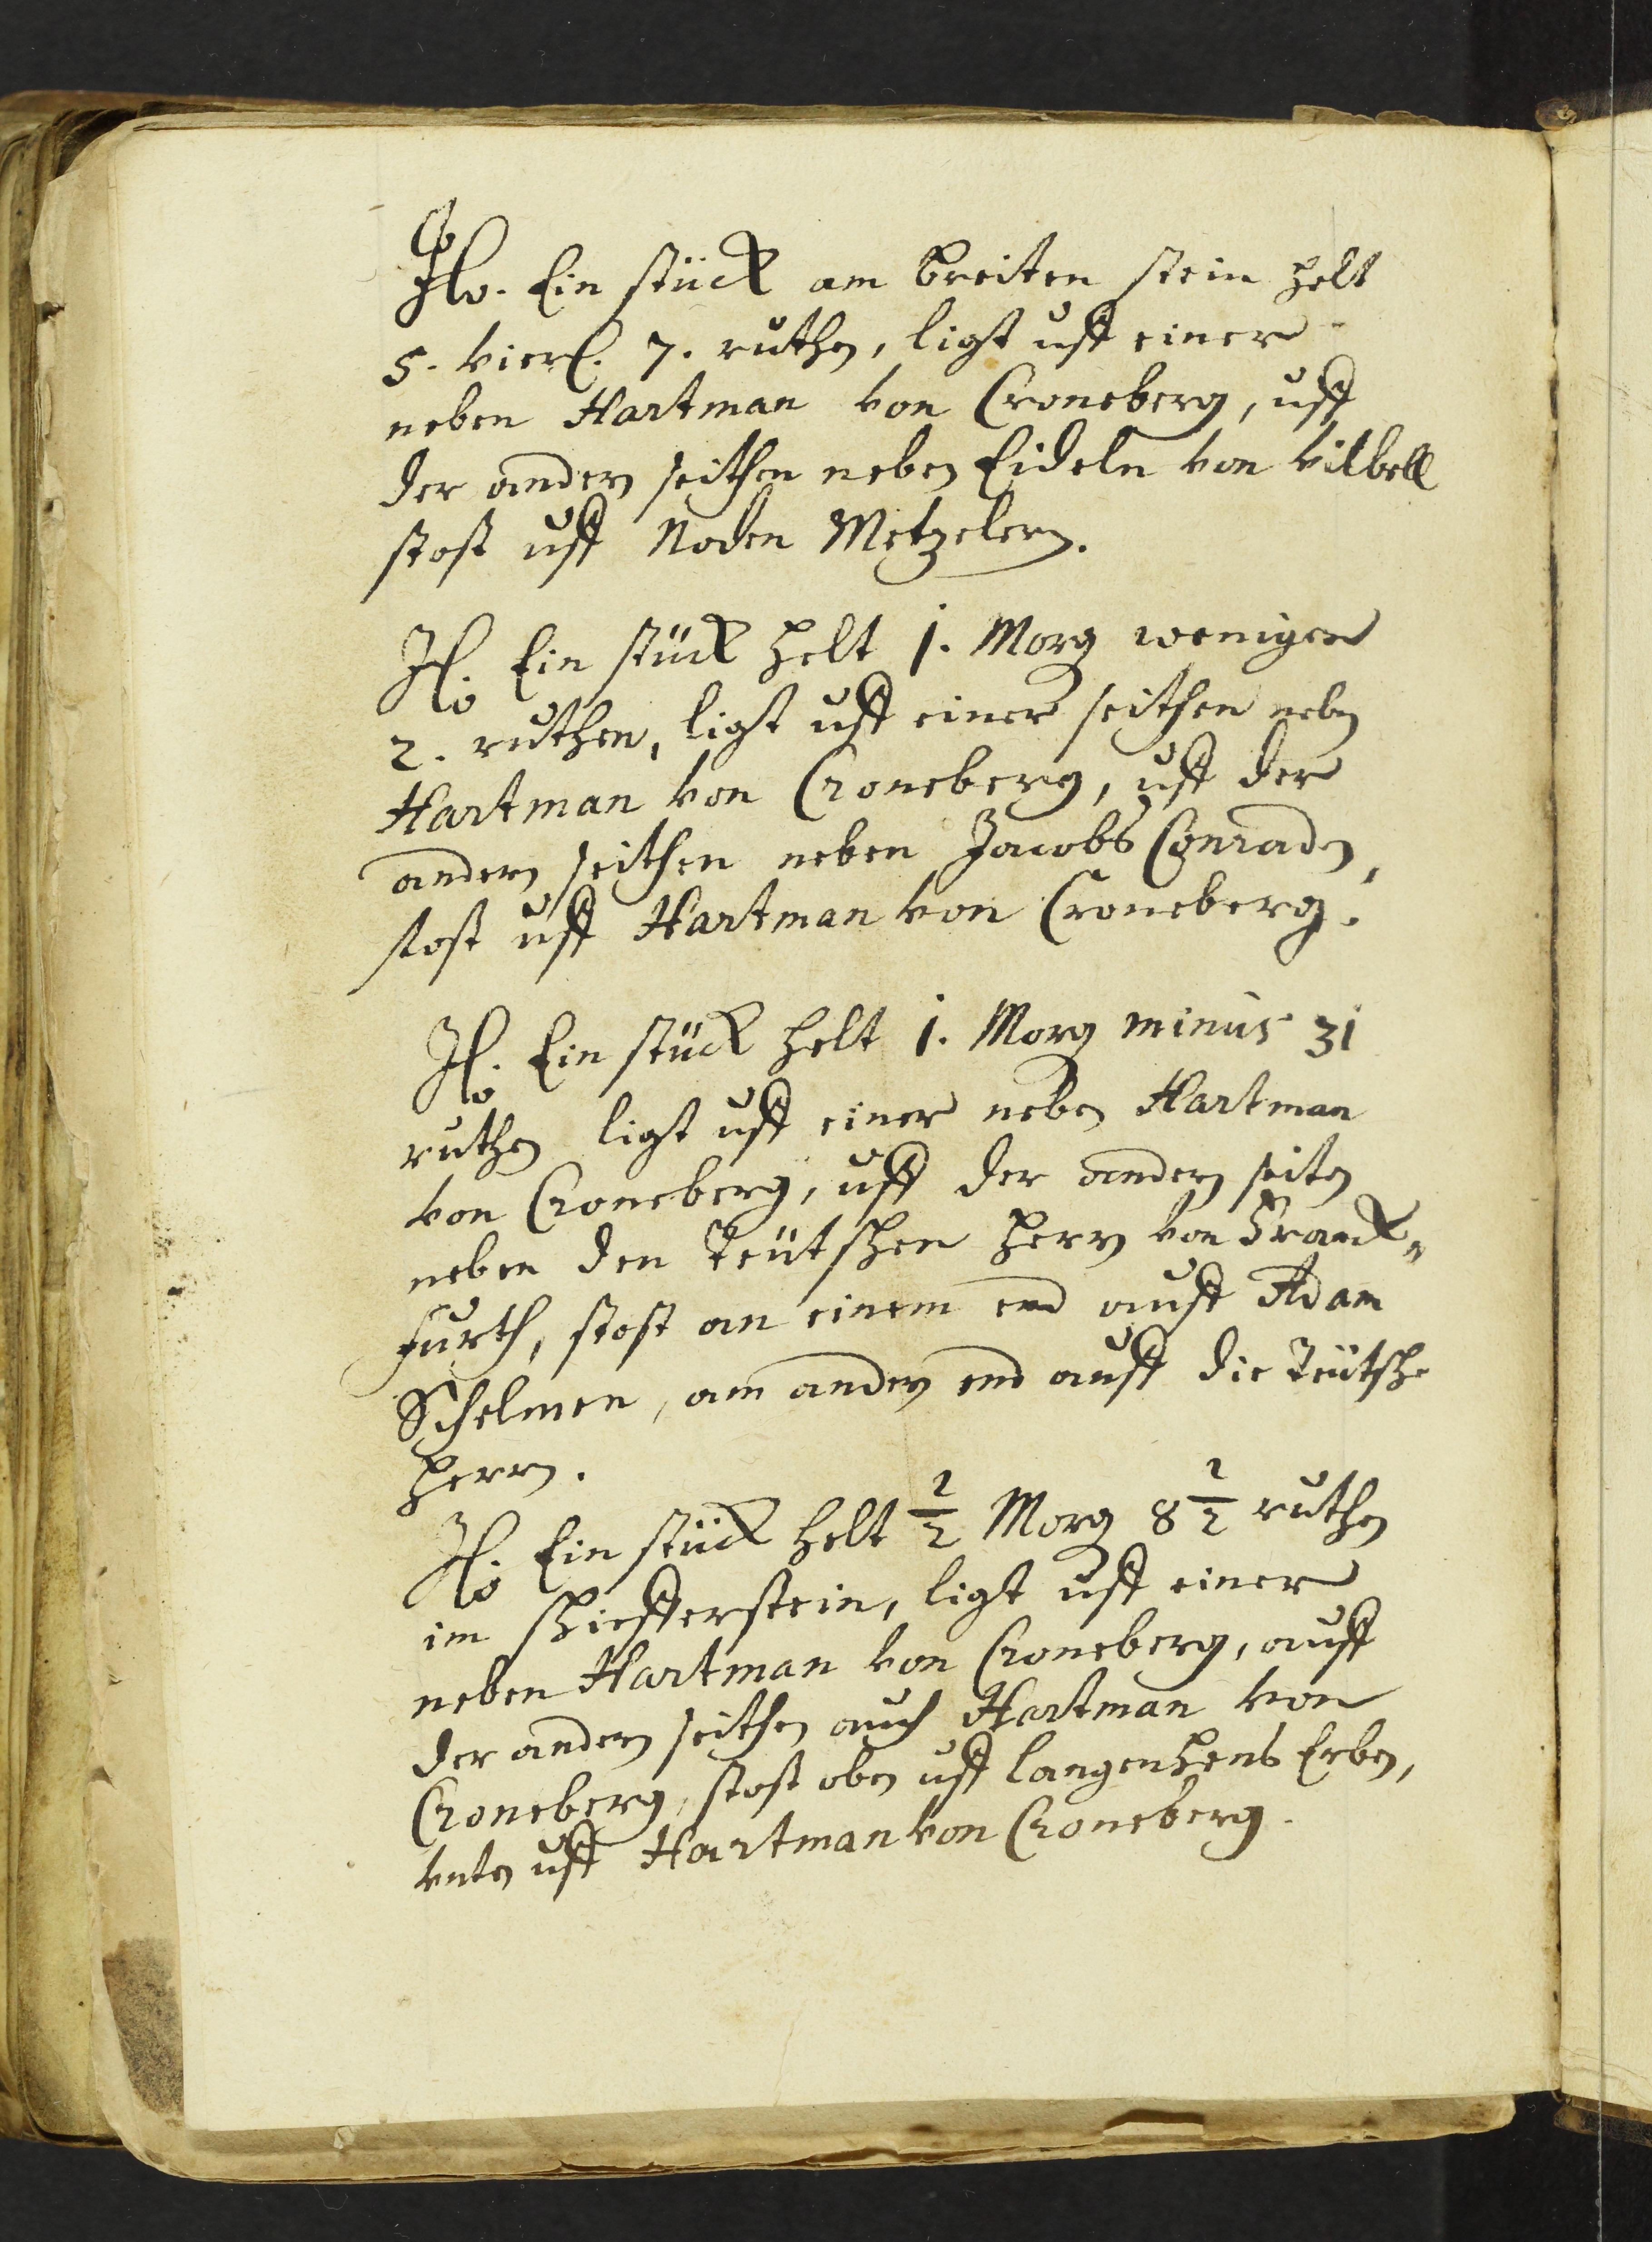 Ito. Ein stück am breiten stein helt
5. vierl. 7. ruthen, ligt uff einer
neben Hartman von Croneberg, uff
der andern seithen neben Eideln von Vilbell
stost uff Noden Metzelern.
Ito. Ein stück helt 1. Morg weniger
2. ruthen, ligt uff einer seithen neben
Hartman von Croneberg, uff der
andern seithen neben Jacobs Conraden,
stost uff Hartman von Croneberg.
Ito. Ein stück helt 1. Morg minus 31
ruthen ligt uff einer neben Hartman
von Croneberg, uff der andern seiten
neben den Teütschen Herrn von Franck„
furth, stost an einem end auff Adam
Schelmen, am andern end auff die Teütsche
Herrn.
Ito. Ein stück helt 1/2 Morg 8 1/2 ruthen
im schiefferstein, ligt uff einer
neben Hartman von Croneberg, auff
der andern seithen auch Hartman von
Croneberg, stost oben uff langenhens Erben,
vnten uff Hartman von Croneberg.